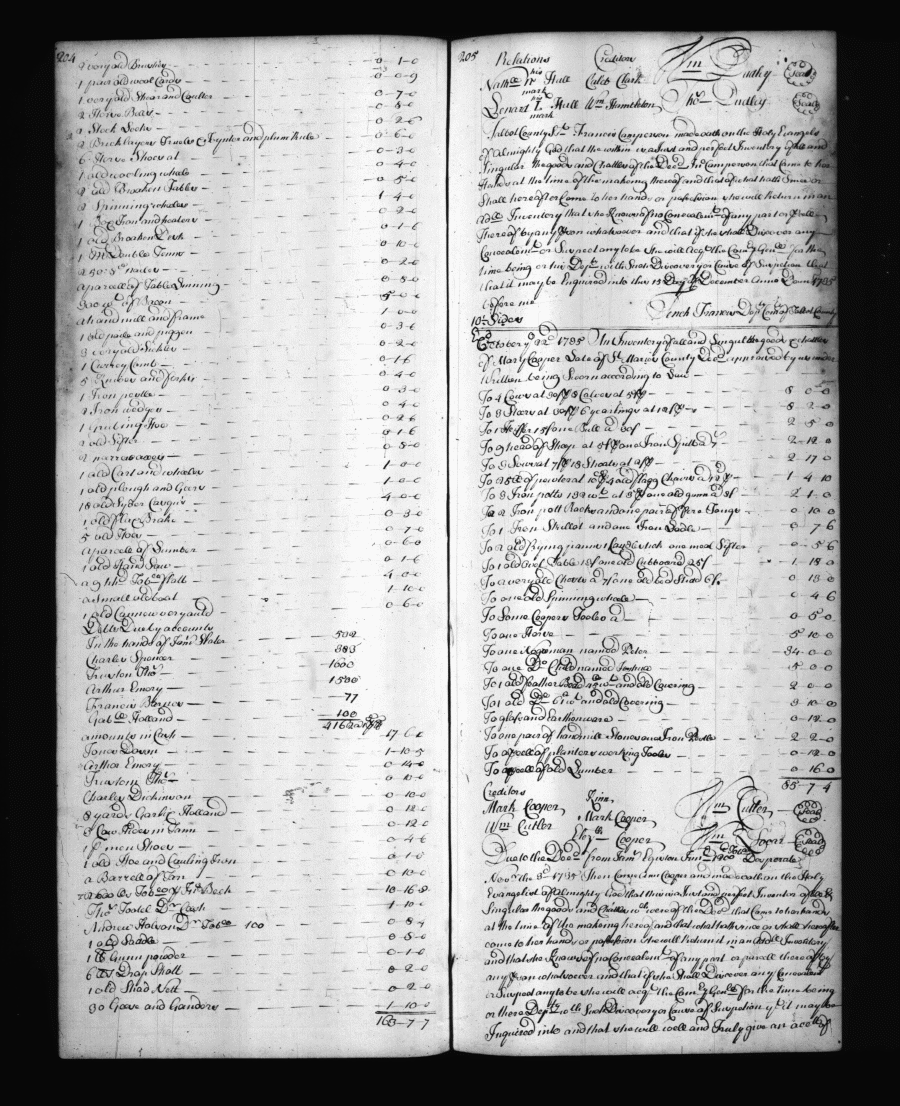 204
2 very old Brushes — 0-1-0
1 pair old wool Cards — 0-0-9
1 very old Shear and Coulter — 0-7-0
2 Horse Bells — 0-3-0
2 Stock Locks — 0-2-6
2 Bricklayers Truels & Joynter and plum Rule — 0-6-0
6 Horse Shoes at — 0-3-0
1 old wooling wheele — 0-4-0
2 old Broaken Tables — 0-5-0
2 Spinning wheeles — 1-4-0
1 Box Iron and heaters — 0-2-0
1 old Broaken Desk — 0-1-6
— 0-10-0
— 0-2-0
a parcell of Table Linning — 0-8-0
of Bacon
a hand mill and frame — 1-0-0
1 old paile and piggen — 0-3-6
3 very old Sickles — 0-2-0
1 Currey Comb — 0-1-6
5 Knives and forks — 0-4-0
1 Iron pestle — 0-3-0
2 Iron wedges — 0-4-0
1 grubing Hoe — 0-2-6
2 old Sifters — 0-1-6
2 narrow axes — 0-5-0
1 old Cart and wheeles — 1-0-0
1 old plough and Geers — 1-0-0
18 old Syder Casques — 4-0-0
1 old flax Brake — 0-3-0
5 old Hoes — 0-7-0
a parcele of Lumber — 0-6-0
1 old hand Saw — 0-1-6
— 4-0-0
a Small old boat — 1-10-0
1 old Cannew very and — 0-6-0
Debts Due by accounts
In the hands of Jams Slater — 502
Charles Spencer — 883
Truxton Thos — 1600
Arthur Emory — 1500
Francis — 77
Gabll Holland — 100
4162
amounts in Cash — 17-6-
Jonas Daven — 1-10-5
Arthur Emory — 0-14-0
Truxtom Thos — 0-10-0
Charles Dickinson — 0-10-0
8 yards Garlic Holland — 0-12-0
2 Cow Hides in Tann — 0-4-6
1 p mens Shoes
1 old Hoe and Cauling Iron — 0-1-0
a Barrell of Tar — 0-10-0
— 10-16-8
Thos Tootel Dr Cash — 1-10-0
Andrew Dr Tobco 100 — 0-8-4
1 old Saddle — 0-5-0
1 lb Gunn powder — 0-1-0
6 lbs Drap Shott — 0-2-0
1 old Shad Nett — 0-2-0
30 Geese and Ganders — 1-10-0
163-7-7
205
Relations Creditors Wm Dudley (Seal)
Nathll his Hull Caleb Clark
mark
Lenart I Hull Wm Hambleton Thos Dudley (Seal)
mark
Talbot County Sst Francis Camperson made oath on the Holy Evangels
of Almighty God that the within is a Just and perfect Inventory of all and
Singular the goods and Chattles of the Decd Jno Camperson that Came to her
Hands at the time of the making thereof and that of what hath Since or
Shall hereafter Come to her hands or possession she will Return in an
addl Inventory that she Knows of no Concealmt of any part or parcell
thereof by any pson whatsoever and that if she shall Discover any
Concealmt or Suspect any to be she will acqt the Comy Genll for the
time being or his Depty with Such Discovery or Cause of Suspition that
that it may be Enquired into this 13 Day of December Anno Domi 1735
before me
Fenck Francis Depy Comy of Talbot County
10 Sides
October ye 22d 1735 An Inventory of all and Singul the goods & chattles
of Mary Cooper Late of St Maries County Decd appraised by us under
Written being Sworn according to Law
To 4 Cows at 30/ 3 Calves at 5/ — 8-0-0
To 3 Steers at 30/ 6 yearlings at 12/ — 8-2-0
To 1 Heffer 15/ one Bull a 30/ — 2-5-0
To 9 head of Sheep at 5/ one Iron Spitt a 7/ — 2-12-0
To 3 Sows at 7/ 18 Shoats at 2/ — 2-17-0
To 25lb of pewter at 10d 4 old flagg Chairs — 1-4-10
To 3 Iron potts 132 wt at 3d one old gunn a 8/ — 2-1-0
To 2 Iron pott Racks and one pair of fire Tongs — 0-10-0
To 1 Iron Skillet and one Iron Ladle — 0-7-6
To 2 old frying pann 1 Candlestick one meal Sifter — 0-5-6
To 1 old Ovel Table 13/ one old Cubboard 25/ — 1-18-0
To 2 very old Chests a 7/ one old bed Stead 6/ — 0-13-0
To one old Spinning wheele — 0-4-6
To Some Coopers Tooles a — 0-5-0
To one Horse — 5-10-0
To one Negroman named Peter — 34-0-0
To one Do Child named Joshua — 5-0-0
To 1 old feather Bed 42 wt and old Covering — 2-0-0
To 1 old Do 61 wt and old Covering — 3-10-0
To glass and Earthenware — 0-12-0
To one pair of handmill Stones and Iron Pestle — 2-2-0
To a pcell of planters working Tooles — 0-12-0
To a pcell of old Lumber — 0-16-0
85-7-4
Creditors Kinn Wm Cutler (Seal)
Mark Cooper Mark Cooper
Wm Cutler Elizth Cooper Wm (Seal)
Due to the Decd from Jams Eynston Junr 900 Tobco Desperate
Novr the 3d 1735 Then Came Ann Cooper and made oath on the Holy
Evangelist of Almighty God that this is a Just and perfect Inventory of all &
Singular the goods and Chattles wch were of the Decd that Came to her hands
at the time of the making hereof and that what hath since or shall hereafter
come to her hands or possession she will Return in an addll Inventory
and that she Knows of no Concealmt of any part or parcell thereof by
any pson whatsoever and that if she Shall Discover any Concealmt
or Suspect any to be she will acqt the Comy Genll for the time being
or there Depty with Such Discovery or Cause of Suspetion yt it may be
Inquired into and that she will well and Truly give an accot of